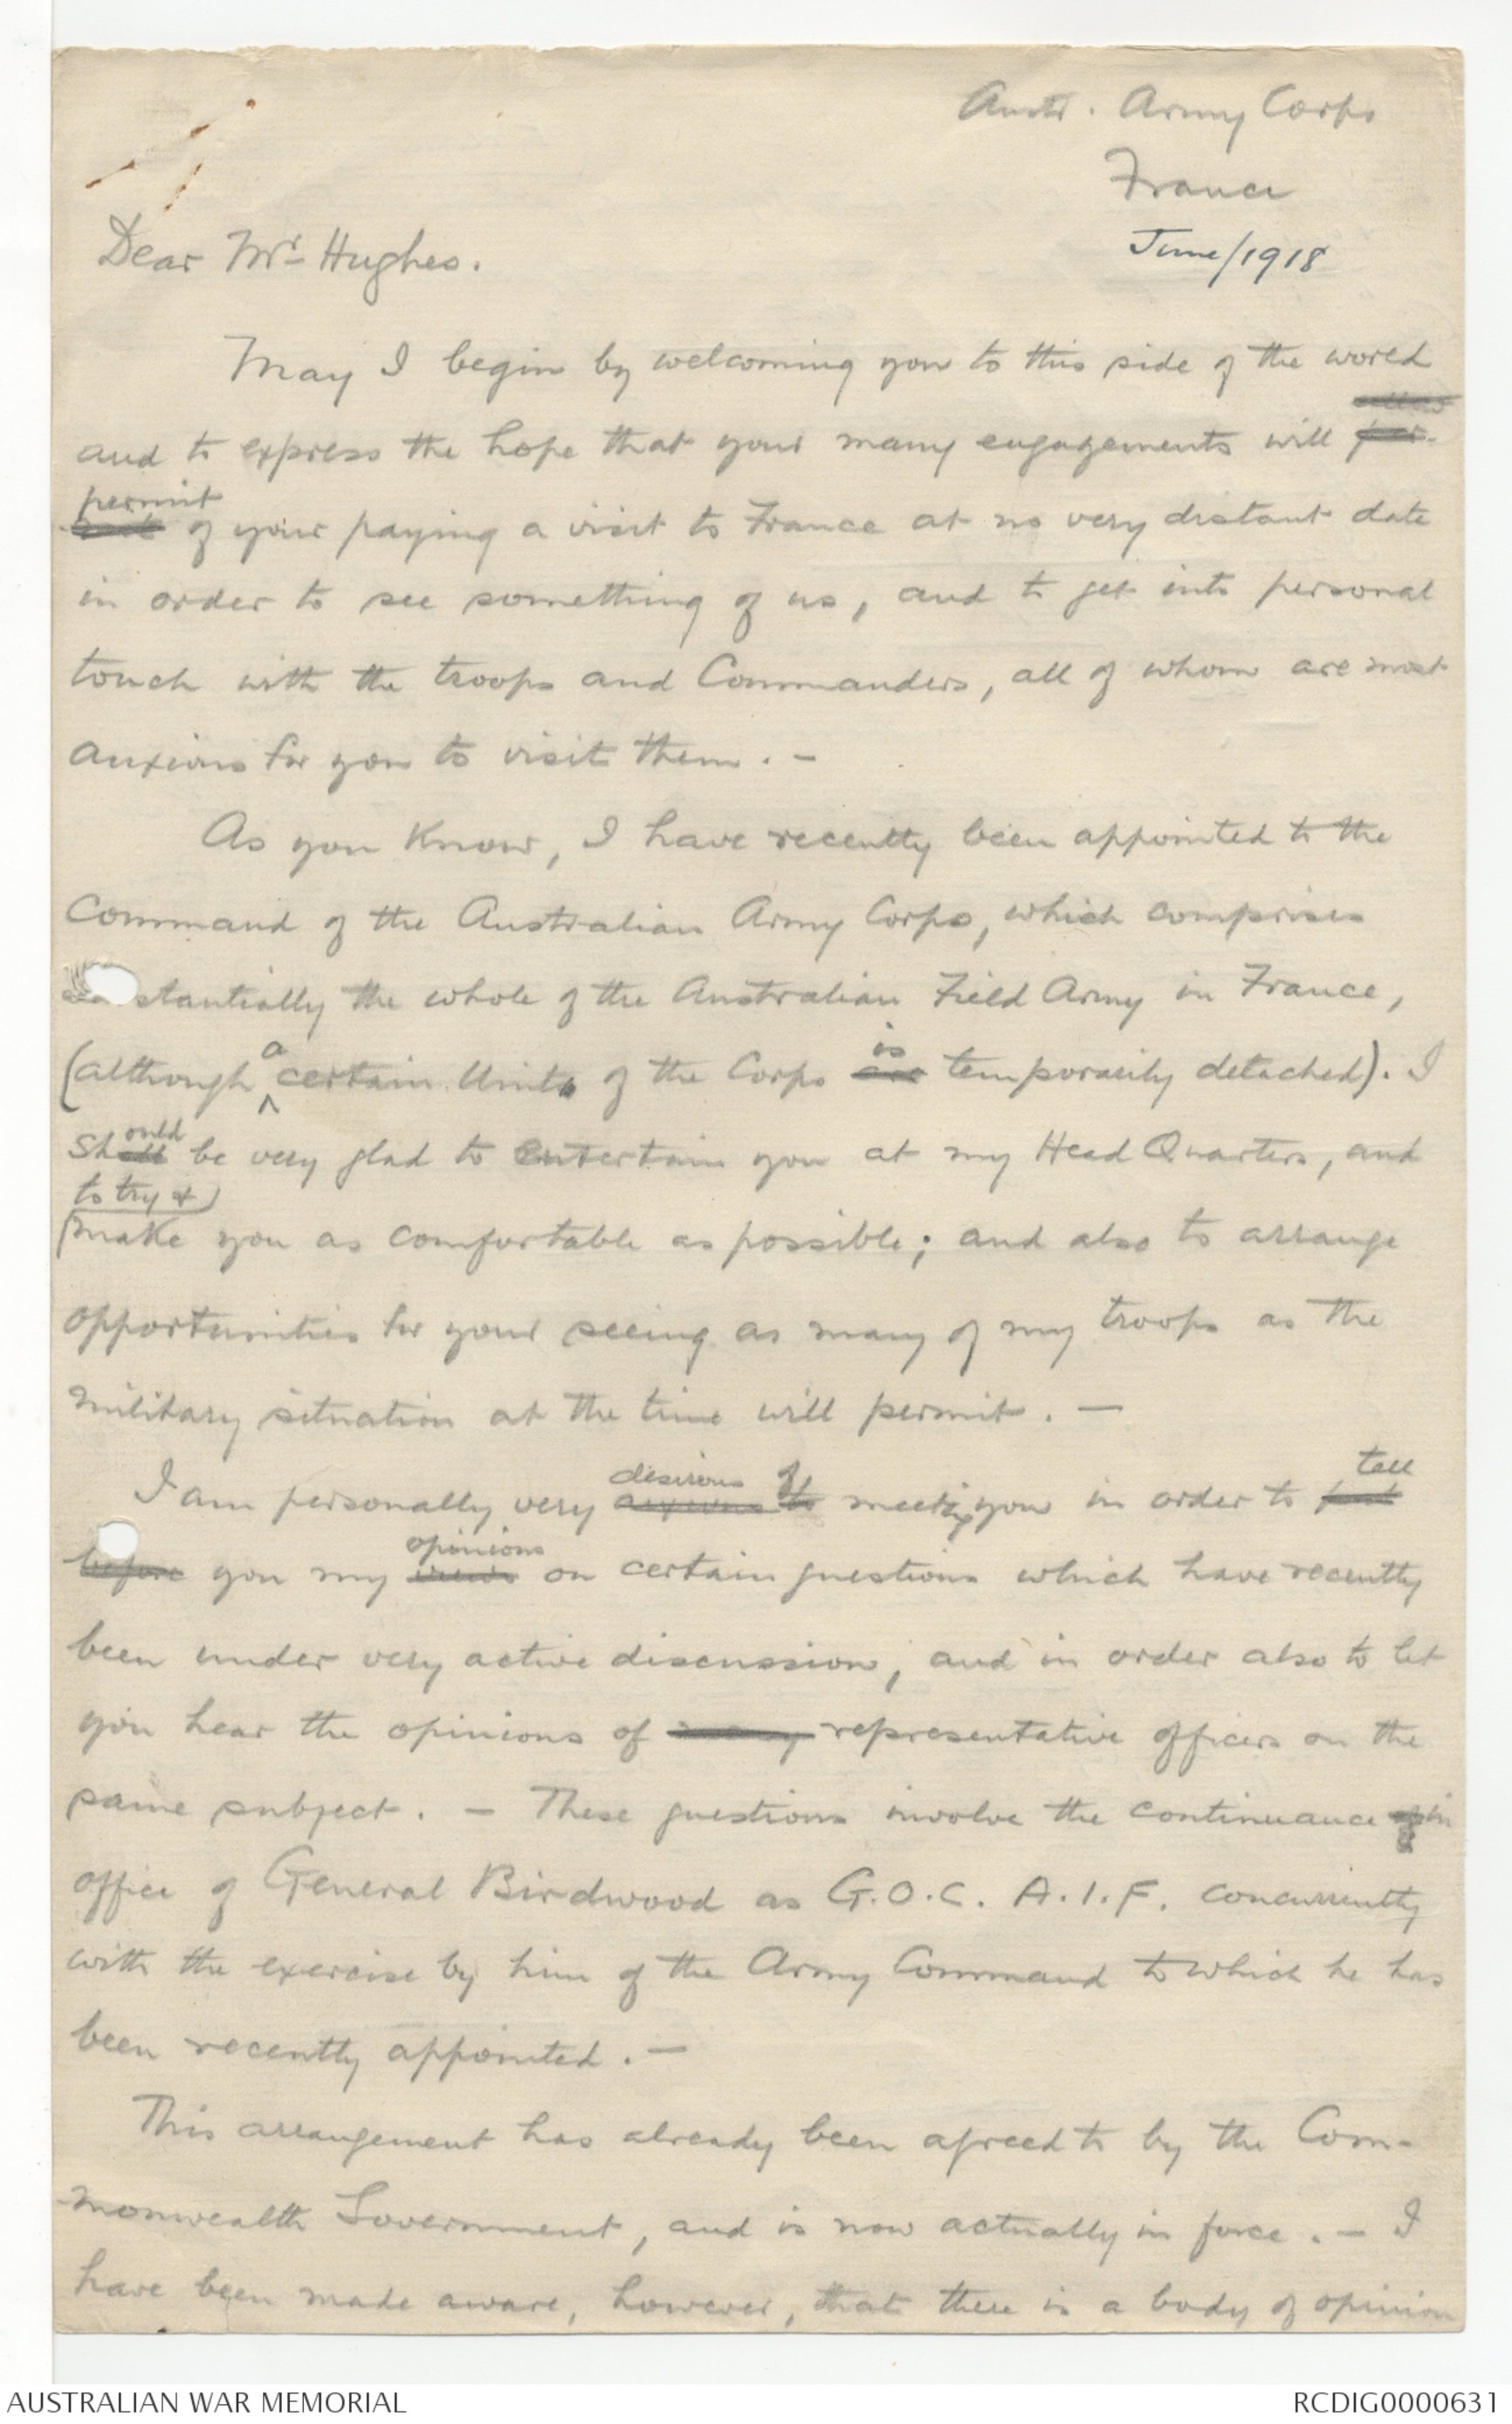 Austr. Army Corps
France
June/1918
Dear Mr Hughes.
May I begin by welcoming you to this side of the world
and to express the hope that your many engagements will
permit of your paying a visit to France at no very distant date
in order to see something of us, and to get into personal
touch with the troops and Commanders, all of whom are most
anxious for you to visit them. -
As you know, I have recently been appointed to the
Command of the Australian Army Corps, which comprises
stantially the whole of the Australian Field Army in France,
(although a certain Unit of the Corps is temporarily detached). I
should be very glad to entertain you at my Head Quarters, and
to try & make you as comfortable as possible; and also to arrange
opportunities for your seeing as many of my troops as the
military situation at the time will permit. -
I am personally very anxious desirous to of meeting you in order to put tell
before you my views opinions on certain questions which have recently
been under very active discussion, and in order also to let
you hear the opinions of many representative officers on the
same subject. - These questions involve the continuance in
office of General Birdwood as G.O.C. A.I.F. concurrently
with the exercise by him of the Army Command to which he has
been recently appointed. -
This arrangement has already been agreed to by the Com-
monwealth Government, and is now actually in force. - I
have been made aware, however, that there is a body of opinion
AUSTRALIAN WAR MEMORIAL
RCDIG0000631